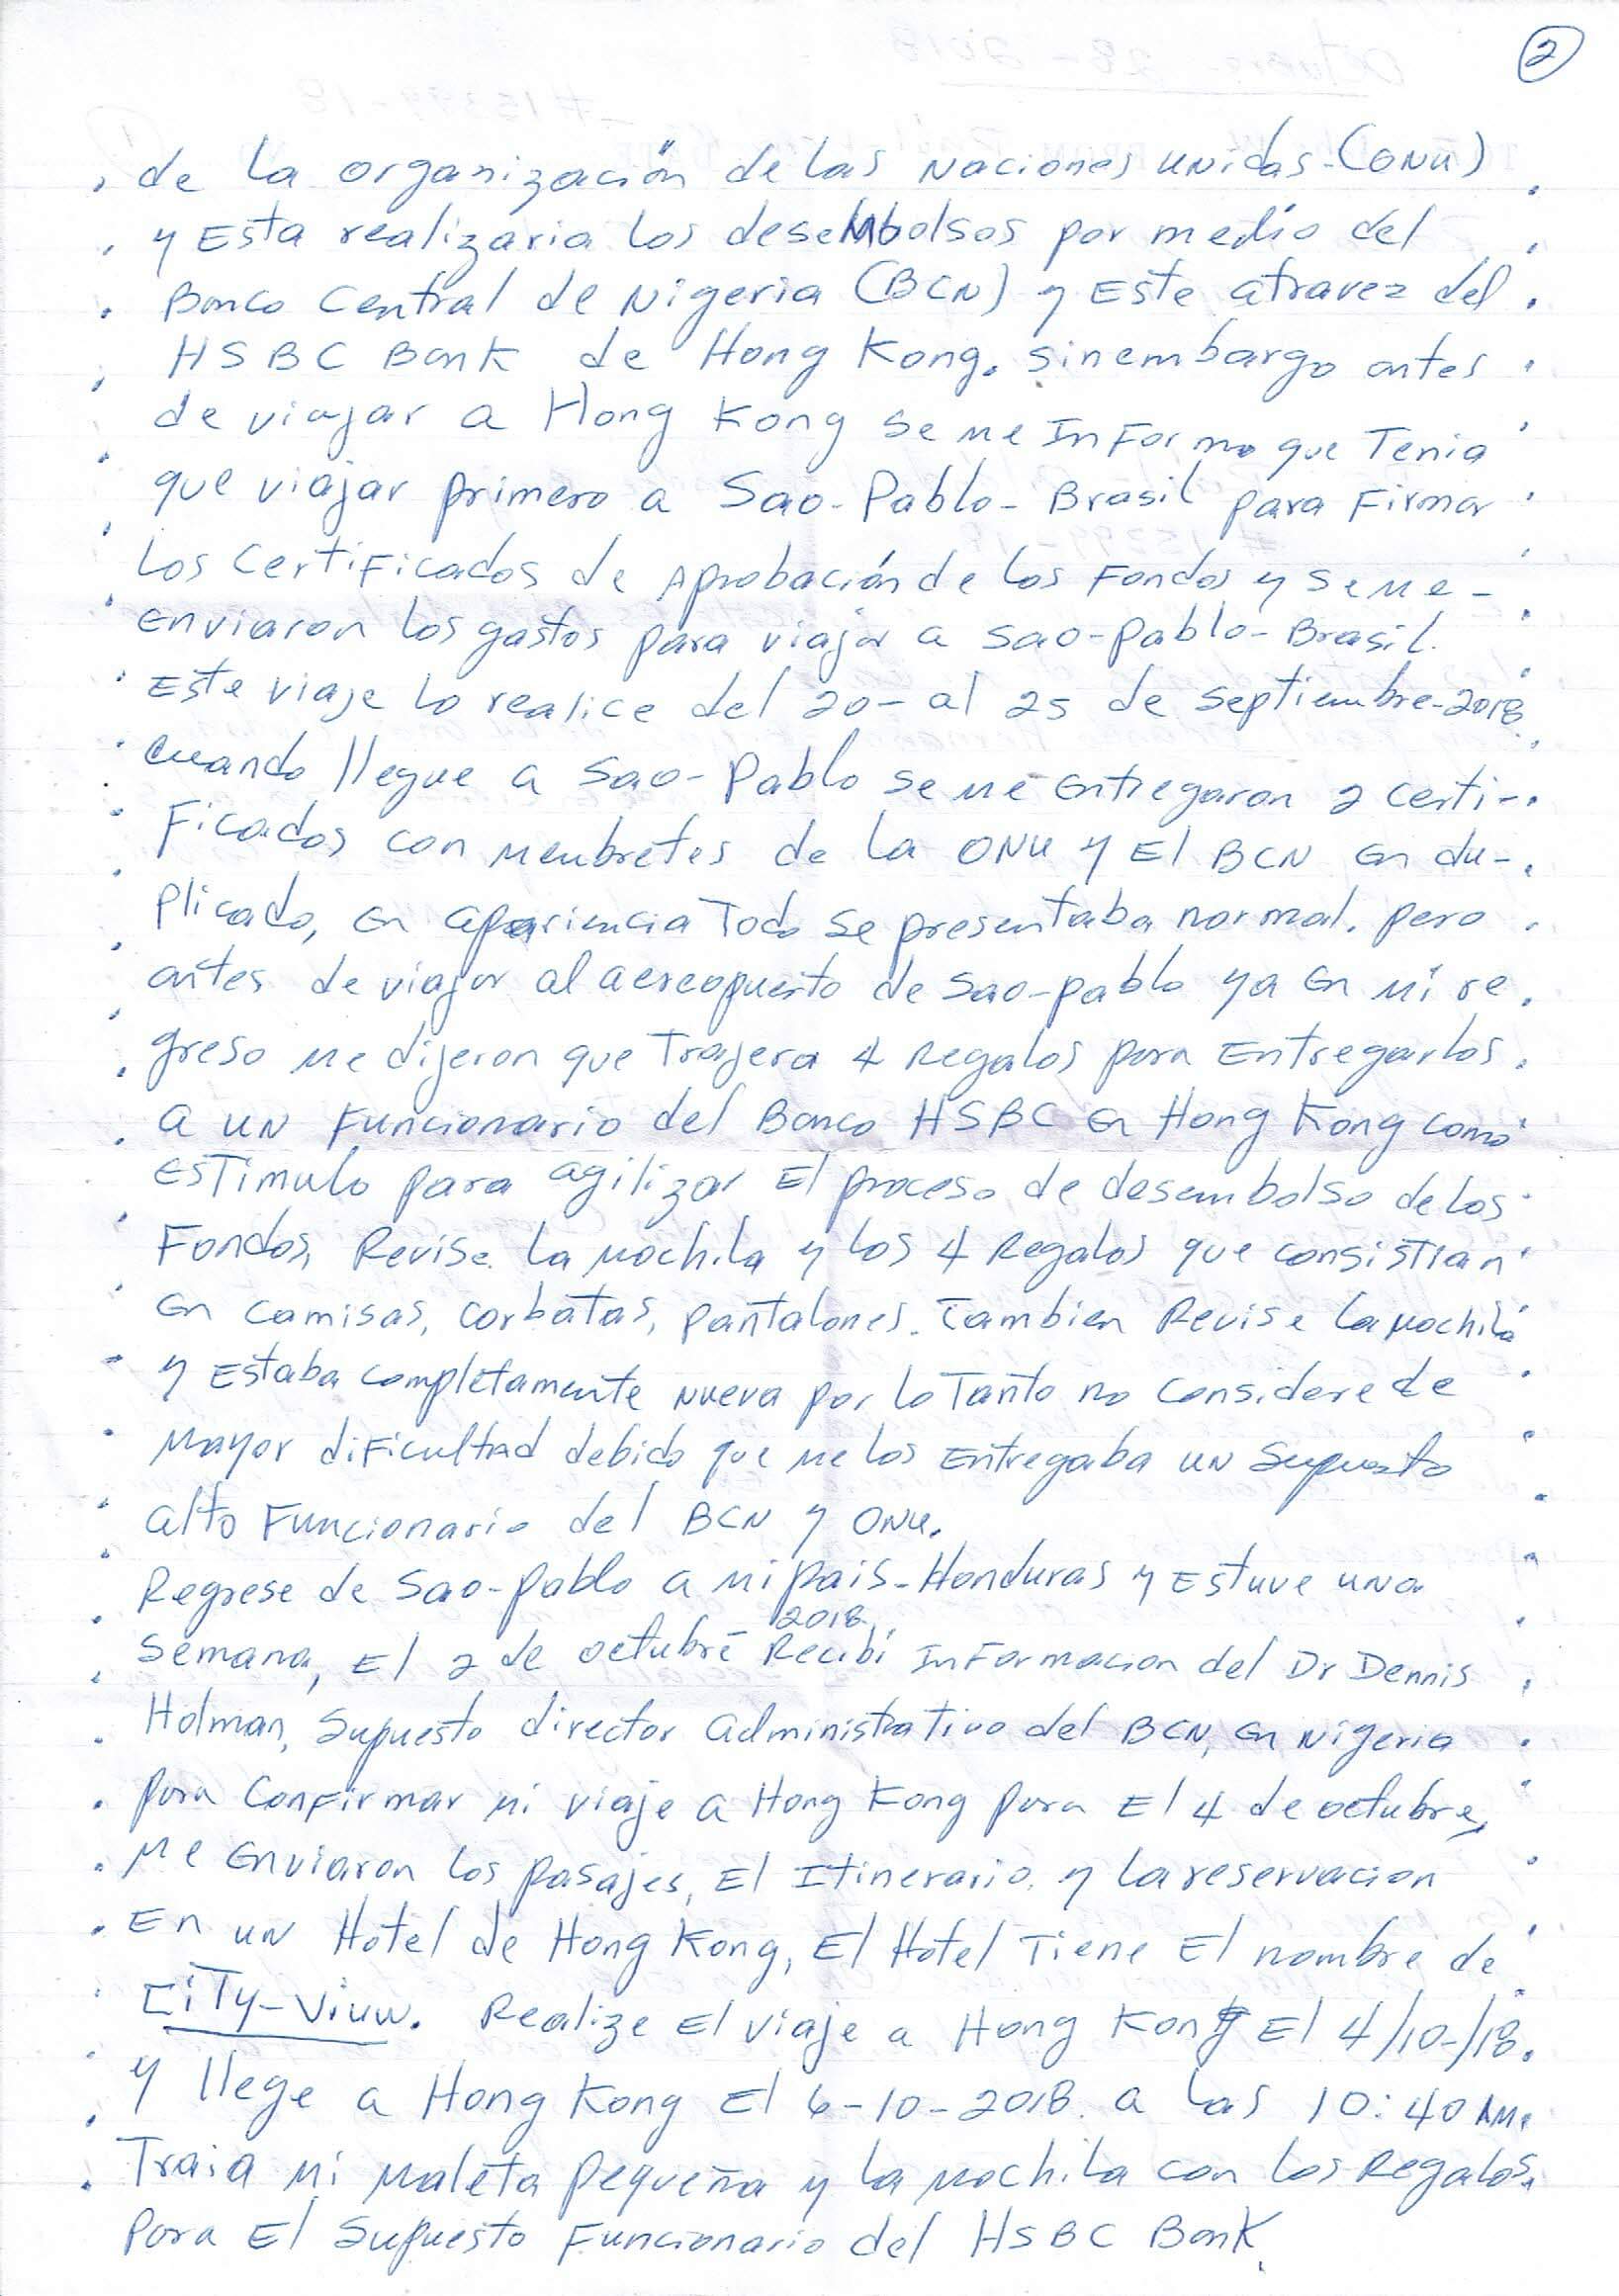 2
de la organización de las Naciones unidas-(ONU)
y Esta realizaria los desembolsos por medio del
Banco Central de Nigeria (BCN) y Este atravez del
HSBC Bank de Hong Kong. sinembargo antes
de viajar a Hong Kong se me InFormo que Tenia
que viajar primero a Sao-Pablo-Brasil para Firmar
Los CertiFicados de Aprobación de los Fondos y se me-
enviaron los gastos para viajar a Sao-pablo-Brasil.
Este viaje lo realice del 20- al 25 de septiembre-2018
cuando llegue a Sao-Pablo se me entregaron 2 certi-
Ficados con Menbretes de la ONU y El BCN en du-
plicado, en apariencia Todo se presentaba normal. pero
antes de viajar al aereopuerto de Sao-pablo ya en mi re
greso me dijeron que Trajera 4 Regalos para Entregarlos
a un Funcionario del Banco HSBC en Hong Kong como
ESTimulo para agilizar El proceso de desembolso de los
Fondos, Revise la mochila y los 4 Regalos que consistian
en camisas, corbatas, pantalones. Tambien Revise la mochila
y Estaba completamente nueva por lo Tanto no considere de
Mayor diFicultad debido que me los Entregaba un Supuesto
alto Funcionario del BCN y ONU.
Regrese de Sao-pablo a mi pais-Honduras y Estuve una
2018
Semana, El 2 de octubre Recibi InFormacion del Dr Dennis
Holman, Supuesto director administrativo del BCN, en Nigeria
para ConFirmar mi viaje a Hong Kong para El 4 de octubre,
Me enviaron los pasajes, El Itinerario. y la reservacion
En un Hotel de Hong Kong, El Hotel Tiene El nombre de
CiTy-Viuw. Realize El viaje a Hong Kong El 4/10-/18.
y llege a Hong Kong El 6-10-2018. a las 10:40 AM.
Traia mi maleta pequeña y la mochila con los Regalos.
para El Supuesto Funcionario del HSBC Bank.